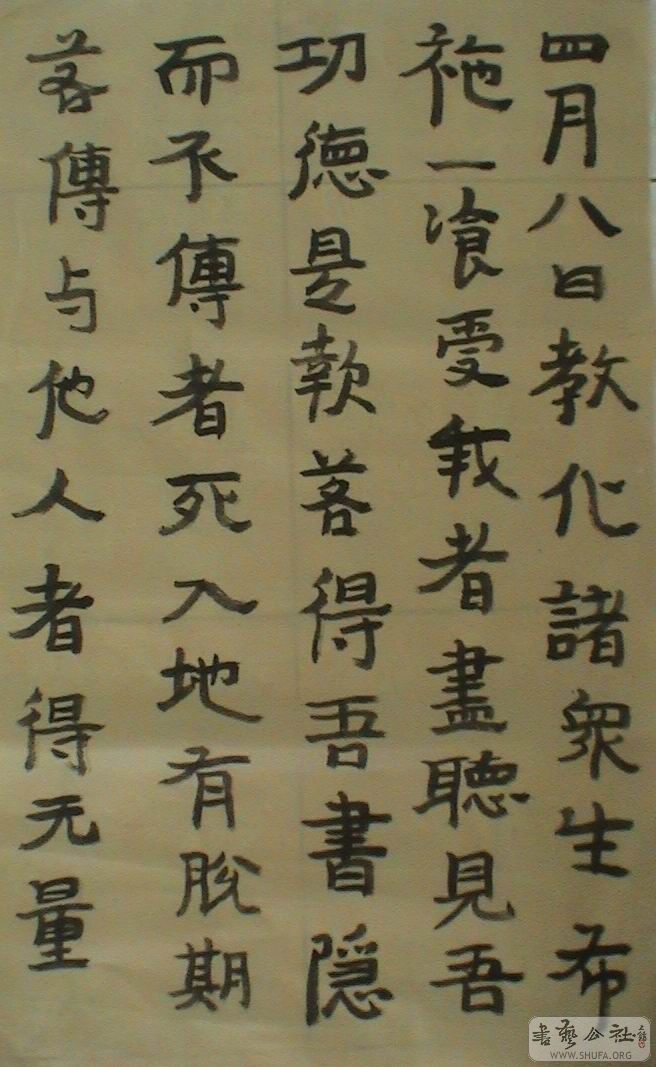 四月八日教化諸衆生布
施一飡受我者盡聽見吾
功德是軟若得吾書隱
而不傳者死入地有脫期
若傳与他人者得无量
書藝公社
WWW.SHUFA.ORG